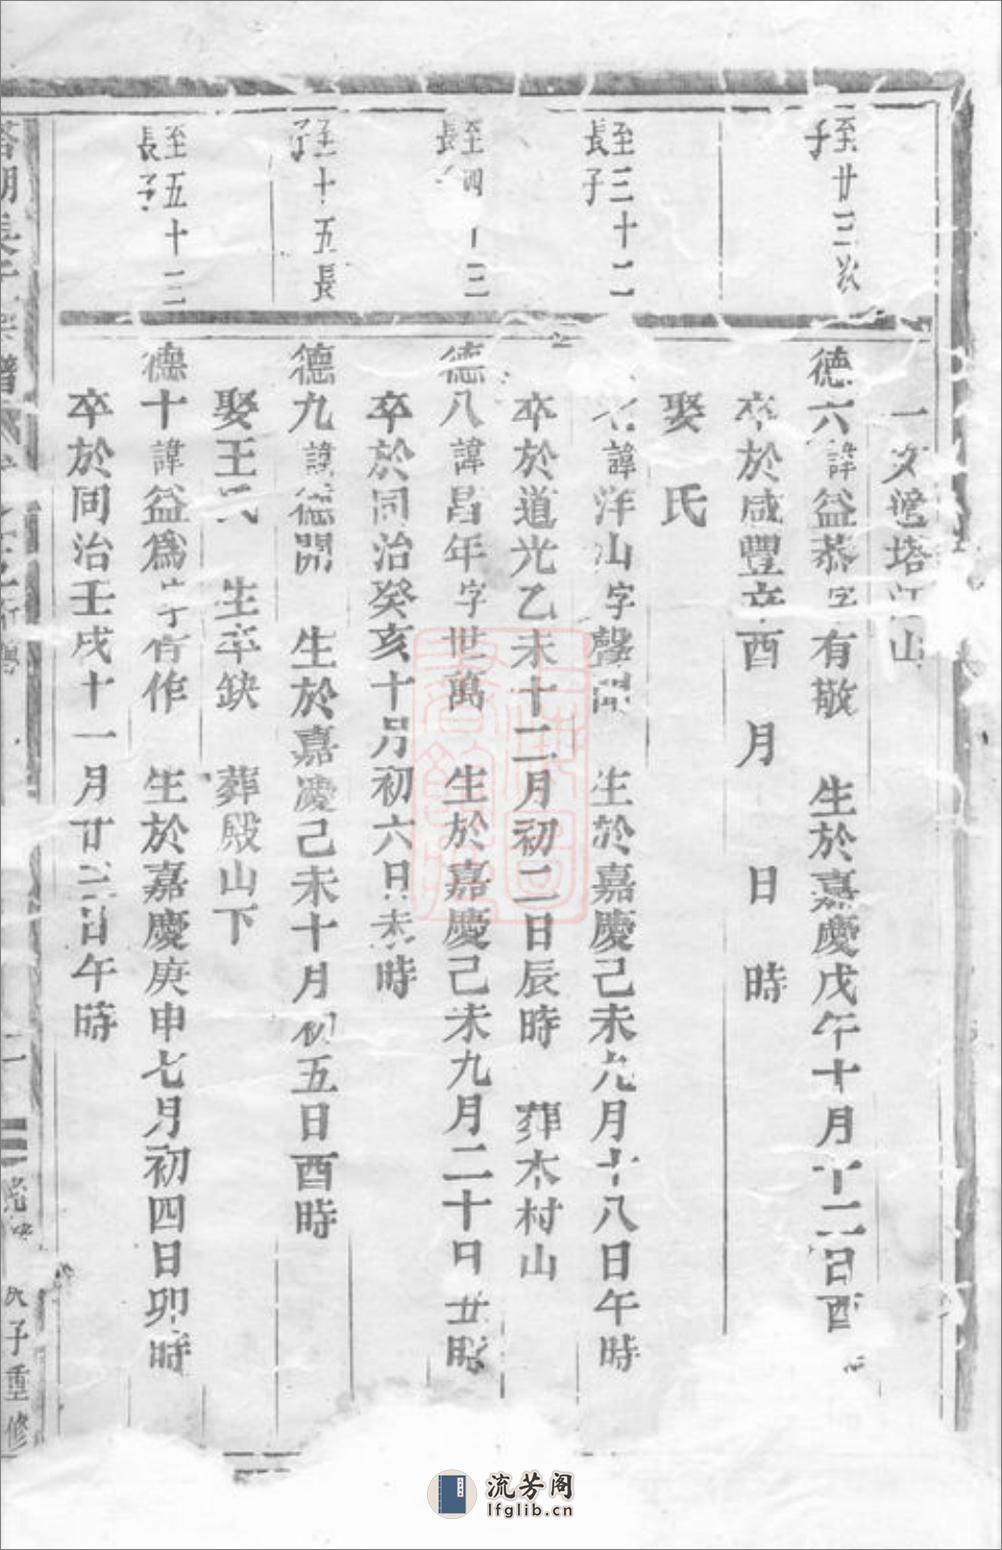 至廿三次
子
至三十二
長子
至四十三
長
至十五長
子
至五十三
長子
塔江山
德六諱益恭字有敬 生於嘉慶戊午十月十二日酉
卒於咸豐辛酉 月 日 時
娶 氏
諱洋山字聲聞 生於嘉慶己未九月十八日午時
卒於道光乙未十二月初二日辰時 葬木村山
德八諱昌年字世萬 生於嘉慶己未九月二十日丑時
卒於同治癸亥十月初六日未時
德九諱德開 生於嘉慶己未十月初五日酉時
娶王氏 生卒缺 葬殿山下
德十諱益為字有作 生於嘉慶庚申七月初四日卯時
卒於同治壬戌十一月廿三日午時
譜
二
光緒戊子重修
流芳阁
lfglib.cn